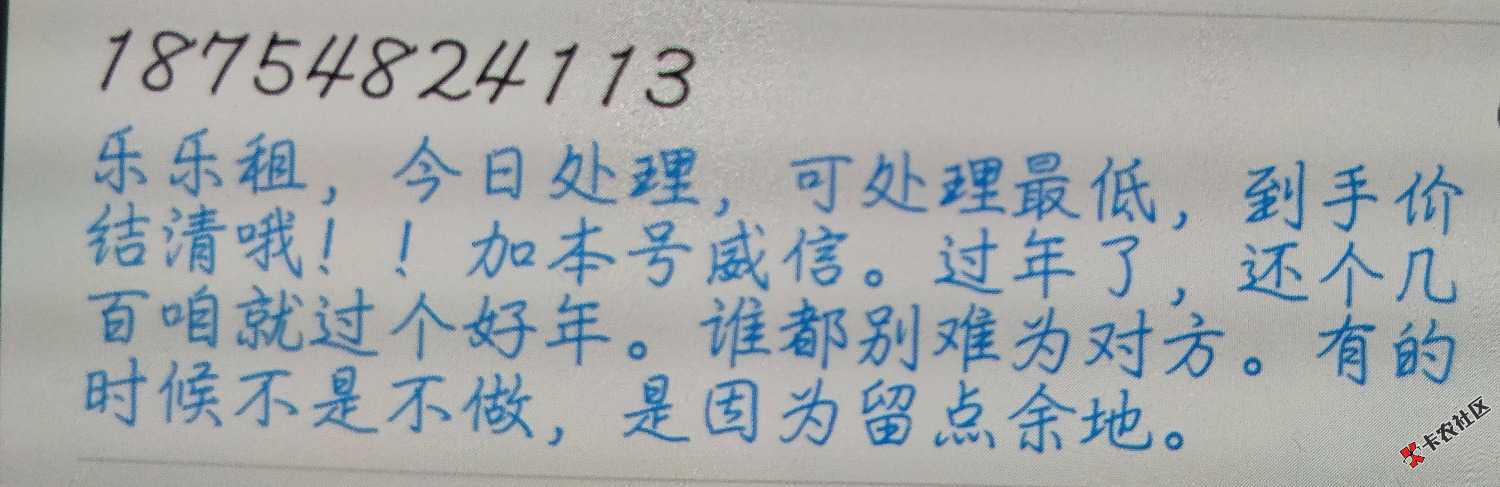 18754824113
乐乐租，今日处理，可处理最低，到手价
结清哦！！加本号威信。过年了，还个几
百咱就过个好年。谁都别难为对方。有的
时候不是不做，是因为留点余地。
卡农社区